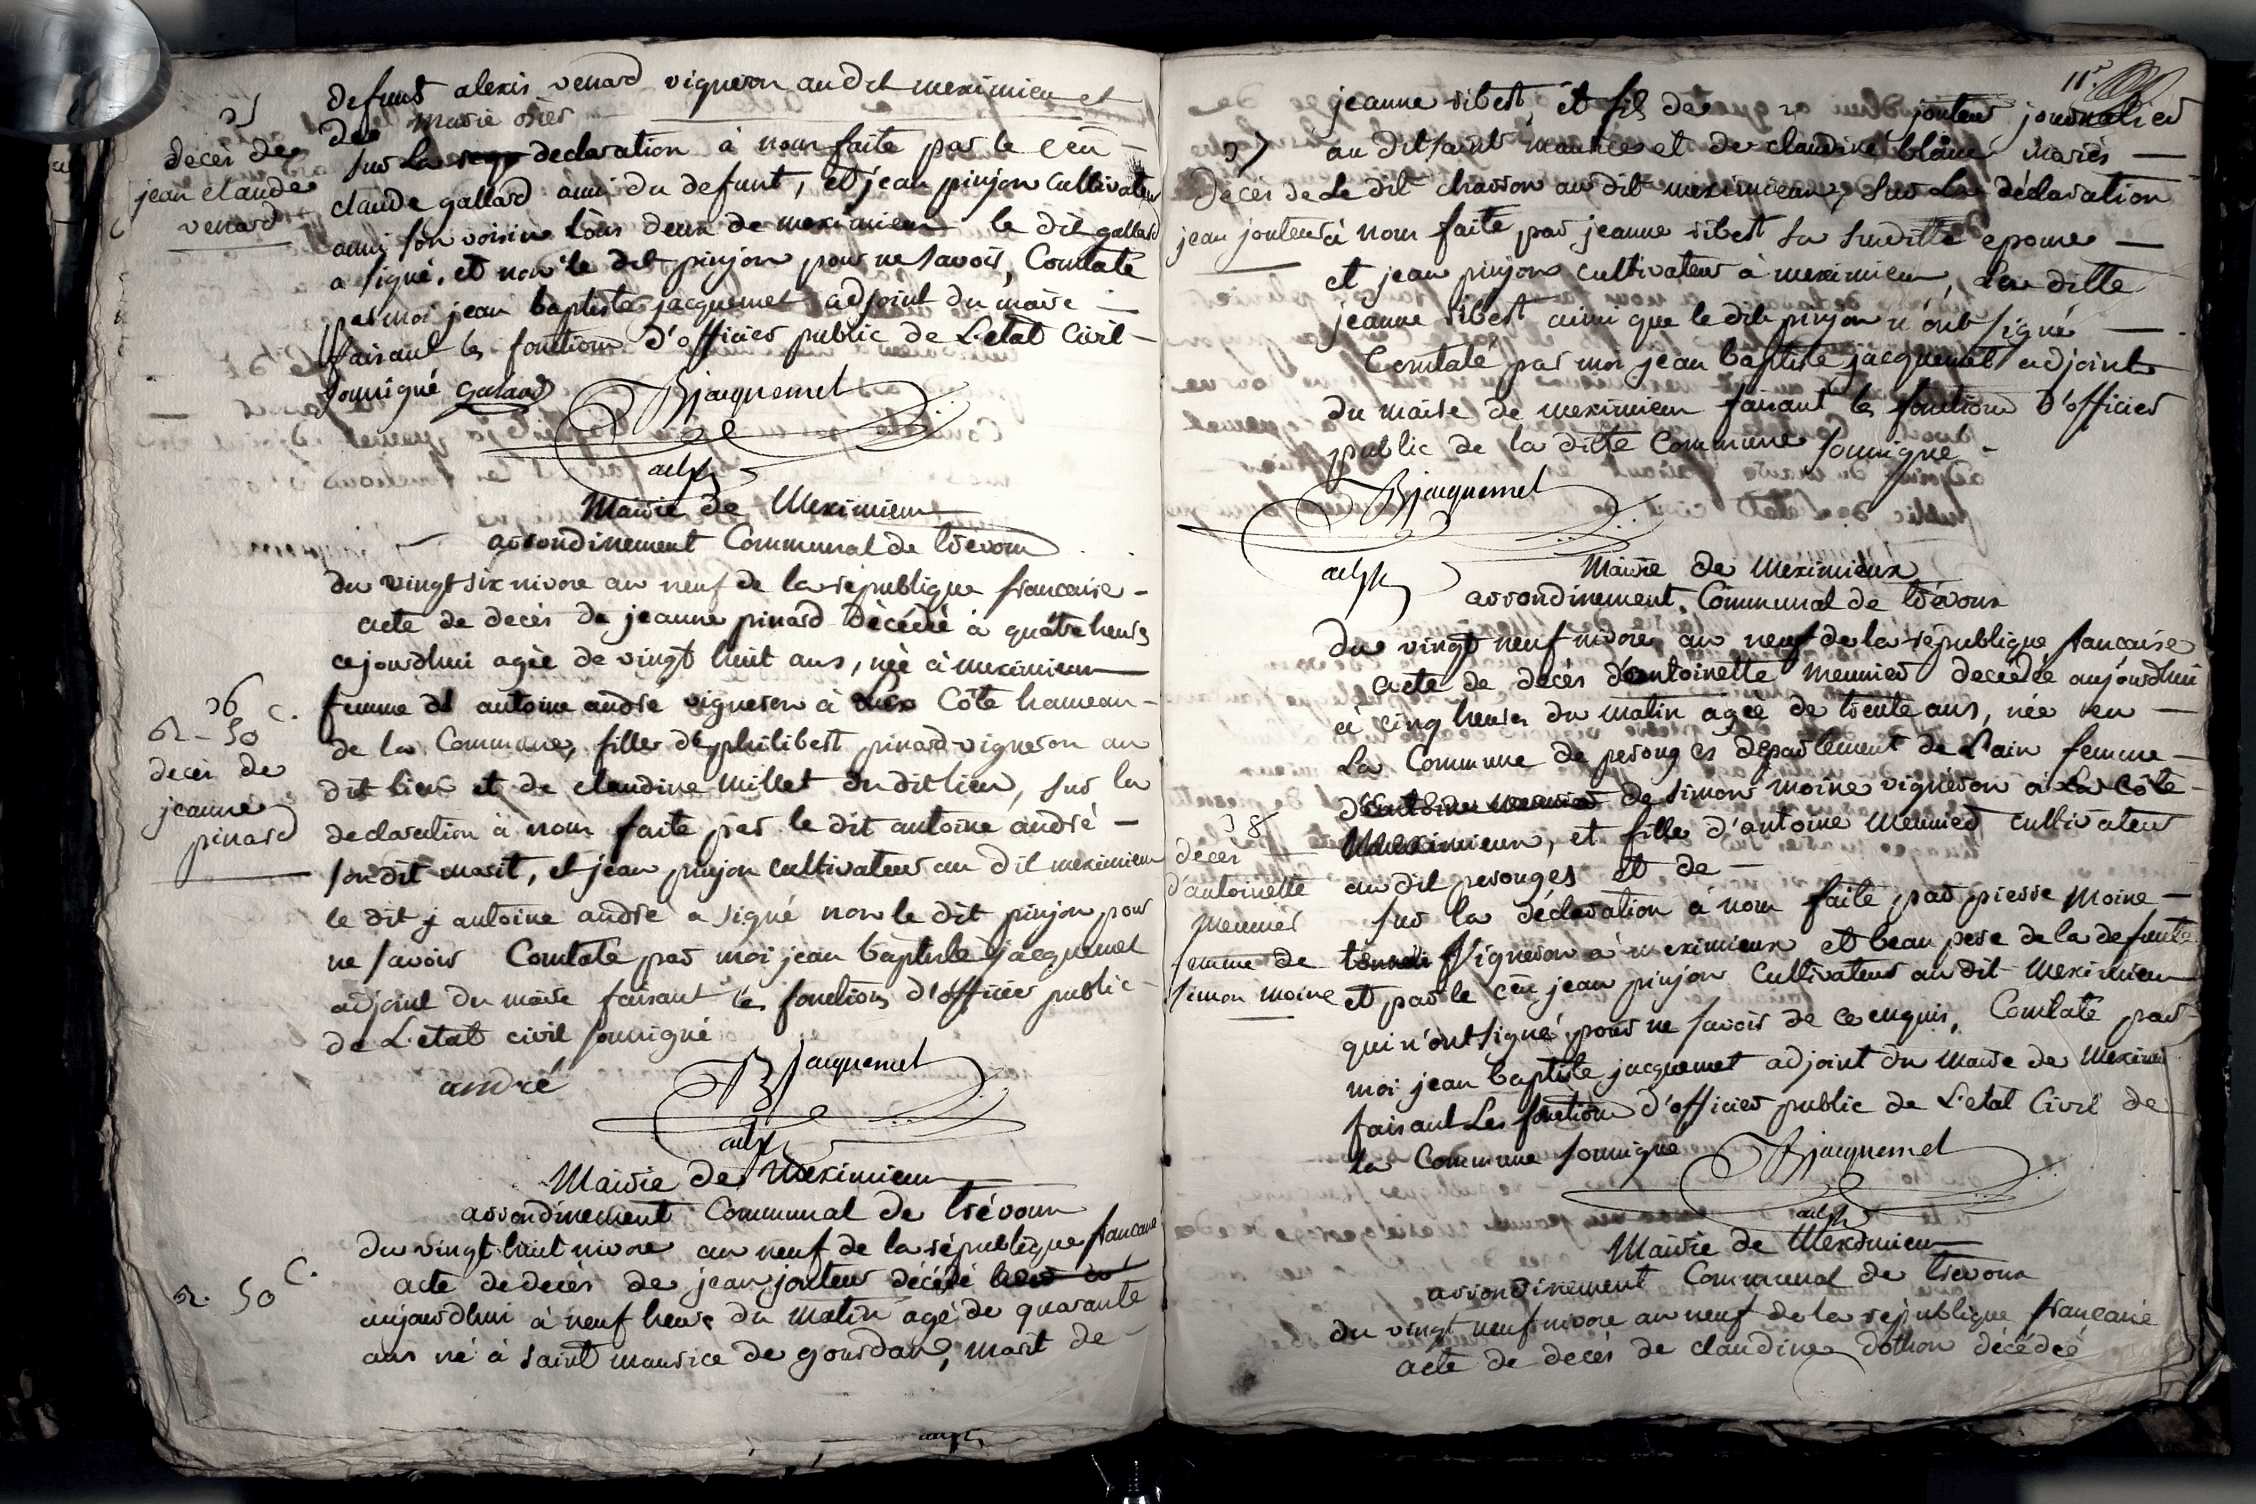 defunt alexis venard vigneron audit meximieu et
de marie osier
35
decès de
jean claude
venard
sur la declaration à nous faite par le cen
claude gallard ami du defunt, et jean pinjon cultivateur
ami son voisin tous deux de meximieu le dit gallard
a signé, et non le dit pinjon pour ne savoir, Constaté
par moi jean baptiste jacquemet adjoint du maire
faisant les fonctions d'officier public de L'etat Civil
soussigné galard BJacquemet
adjt
Mairie de Meximieu
arrondissement Communal de trévoux
du vingt six nivose an neuf de la république francaise
acte de decès de jeanne pinard décédé à quatre heures
cejourdhui agée de vingt huit ans, née à meximieux
36 C.
52 - 50
decès de
jeanne
pinard
femme d antoine andré vigneron à La Côte hameau
de la Commune, fille de philibert pinard vigneron au
dit lieu et de claudine Millet du dit lieu, sur la
declaration à nous faite par le dit antoine andré
son dit marit, et jean pinjon cultivateur au dit meximieu
le dit j antoine andré a signé non le dit pinjon pour
ne savoir Constaté par moi jean baptiste jacquemet
adjoint du maire faisant les fonctions d'officier public
de L'etat civil soussigné
andré BJacquemet
adjt
Mairie de Meximieu
arrondissement Communal de trévoux
du vingt huit nivose an neuf de la république francaise
52. 50 C.
acte de decès de jean jouteur décédé
aujourdhui à neuf heure du matin agé de quarante
ans né à saint maurice de gourdan, marit de
11e
jeanne ribest, et fils de jouteur journalier
37
decès de
jean jouteur
au dit saint maurice et de claudine blanc mariés
Le dit charron au dit meximieux, sur La déclaration
à nous faite par jeanne ribest sa susditte epouse
et jean pinjon cultivateur à meximieu, La ditte
jeanne ribest ainsi que le dit pinjon n'ont signé
Constaté par moi jean baptiste jacquemet adjoint
du maire de meximieu faisant les fonctions d'officier
public de la ditte Commune soussigné
BJacquemet
adjt
Mairie de Meximieux
arrondissement Communal de trévoux
du vingt neuf nivose an neuf de la république francaise
acte de decès d'antoinette meunier decédée aujourdhui
à cinq heures du matin agée de trente ans, née en
La Commune de perouges departement de L'ain femme
de simon moine vigneron à La Côte
38
decès
d'antoinette
meunier
femme de
simon moine
Meximieux, et fille d'antoine Meunier cultivateur
au dit perouges et de
sur la déclaration à nous faite par pierre Moine
Vigneron à meximieux et beau pere de la defunte
et par le cen jean pinjon Cultivateur au dit Meximieu
qui n'ont signé pour ne savoir de ce enquis, Constaté par
moi jean baptiste jacquemet adjoint du Maire de Meximieu
faisant Les fonctions d'officier public de L'etat Civil de
la Commune soussigné BJacquemet
adjt
Mairie de Meximieu
arrondissement Communal de trévoux
du vingt neuf nivose an neuf de la république francaise
acte de decès de claudine dothon décédée